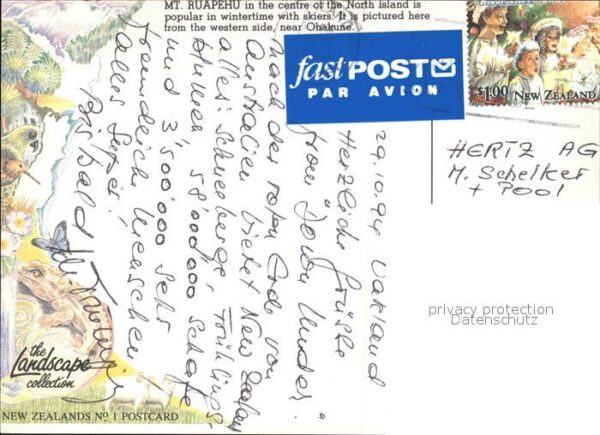 MT. RUAPEHU in the centre of the North Island is
popular in wintertime with skiers. It is pictured here
from the western side, near Ohakune.
fastPOST
PAR AVION
$1.00 NEW ZEALAND
29.10.94 Oakland
Herzliche Grüße
from "Down Under".
Nach der roten Erde von
Australien bietet New Zealand
alles: Schneeberge, Frühlings-
58'000'000 Schafe
und 3'500'000 sehr
freundliche Menschen.
Alles Super!
Bis bald
HERTZ AG
M. Schelker
+ Pool
privacy protection
Datenschutz
the
Landscape
collection
NEW ZEALANDS No 1 POSTCARD